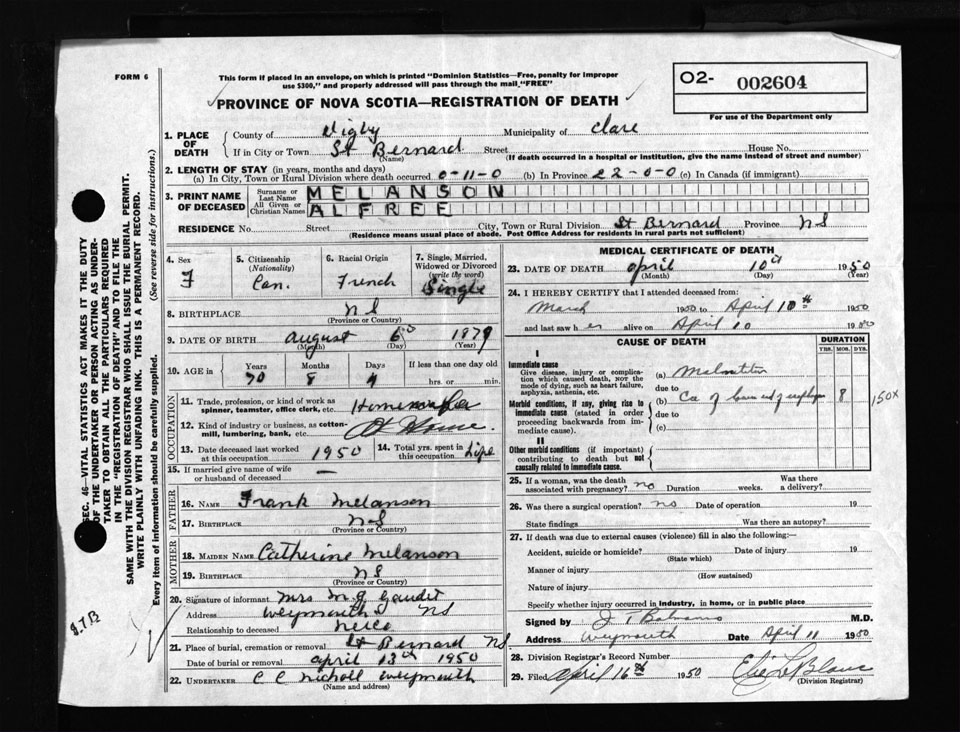 FORM 6
This form if placed in an envelope, on which is printed "Dominion Statistics—Free, penalty for improper
use $300," and properly addressed will pass through the mail "FREE"
PROVINCE OF NOVA SCOTIA—REGISTRATION OF DEATH
O2- 002604
For use of the Department only
1. PLACE OF DEATH
County of Digby Municipality of Clare
If in City or Town St Bernard Street House No.
(Name) (If death occurred in a hospital or institution, give the name instead of street and number)
2. LENGTH OF STAY (in years, months and days)
(a) In City, Town or Rural Division where death occurred 0-11-0 (b) In Province 22-0-0 (c) In Canada (if immigrant)
3. PRINT NAME OF DECEASED
Surname or Last Name MELANSON
All Given or Christian Names ALFREE
RESIDENCE No. Street City, Town or Rural Division St Bernard Province NS
(Residence means usual place of abode. Post Office Address for residents in rural parts not sufficient)
4. Sex F
5. Citizenship (Nationality) Can.
6. Racial Origin French
7. Single, Married, Widowed or Divorced (write the word) Single
8. BIRTHPLACE NS
(Province or Country)
9. DATE OF BIRTH August 6 1879
(Month) (Day) (Year)
10. AGE in Years Months Days If less than one day old
70 8 4 hrs. or min.
OCCUPATION
11. Trade, profession or kind of work as spinner, teamster, office clerk, etc.
12. Kind of industry or business, as cotton-mill, lumbering, bank, etc. At Home.
13. Date deceased last worked at this occupation 1950
14. Total yrs. spent in this occupation Life
15. If married give name of wife or husband of deceased —
FATHER
16. NAME Frank Melanson
17. BIRTHPLACE NS
(Province or Country)
MOTHER
18. MAIDEN NAME Catherine Melanson
19. BIRTHPLACE NS
(Province or Country)
20. Signature of informant Mrs M. J. Gaudet
Address Weymouth NS
Relationship to deceased neice
21. Place of burial, cremation or removal St Bernard NS
Date of burial or removal April 13th 1950
22. UNDERTAKER C C Nicholl Weymouth
(Name and address)
MEDICAL CERTIFICATE OF DEATH
23. DATE OF DEATH April 10th 1950
(Month) (Day) (Year)
24. I HEREBY CERTIFY that I attended deceased from:
March 1950 to April 10th 1950
and last saw h er alive on April 10 1950
CAUSE OF DEATH
DURATION
YRS. MOS. DYS.
I
Immediate cause
Give disease, injury or complication which caused death, NOT the mode of dying, such as heart failure, asphyxia, asthenia, etc.
(a)
due to
Morbid conditions, if any, giving rise to immediate cause (stated in order proceeding backwards from immediate cause).
(b) Ca of 8
due to
(c)
150X
II
Other morbid conditions (if important) contributing to death but not causally related to immediate cause.
25. If a woman, was the death associated with pregnancy? no Duration weeks. Was there a delivery?
26. Was there a surgical operation? no Date of operation 19
State findings Was there an autopsy?
27. If death was due to external causes (violence) fill in also the following:—
Accident, suicide or homicide? Date of injury 19
(State which)
Manner of injury
(How sustained)
Nature of injury
Specify whether injury occurred in industry, in home, or in public place
Signed by M.D.
Address Weymouth Date April 11 1950
28. Division Registrar's Record Number
29. Filed April 16th 1950 Elie LeBlanc
(Division Registrar)
SEC. 46—VITAL STATISTICS ACT MAKES IT THE DUTY
OF THE UNDERTAKER OR PERSON ACTING AS UNDER-
TAKER TO OBTAIN ALL THE PARTICULARS REQUIRED
IN THE "REGISTRATION OF DEATH" AND TO FILE THE
SAME WITH THE DIVISION REGISTRAR WHO SHALL ISSUE THE BURIAL PERMIT.
WRITE PLAINLY WITH UNFADING INK. THIS IS A PERMANENT RECORD.
Every item of information should be carefully supplied. (See reverse side for instructions.)